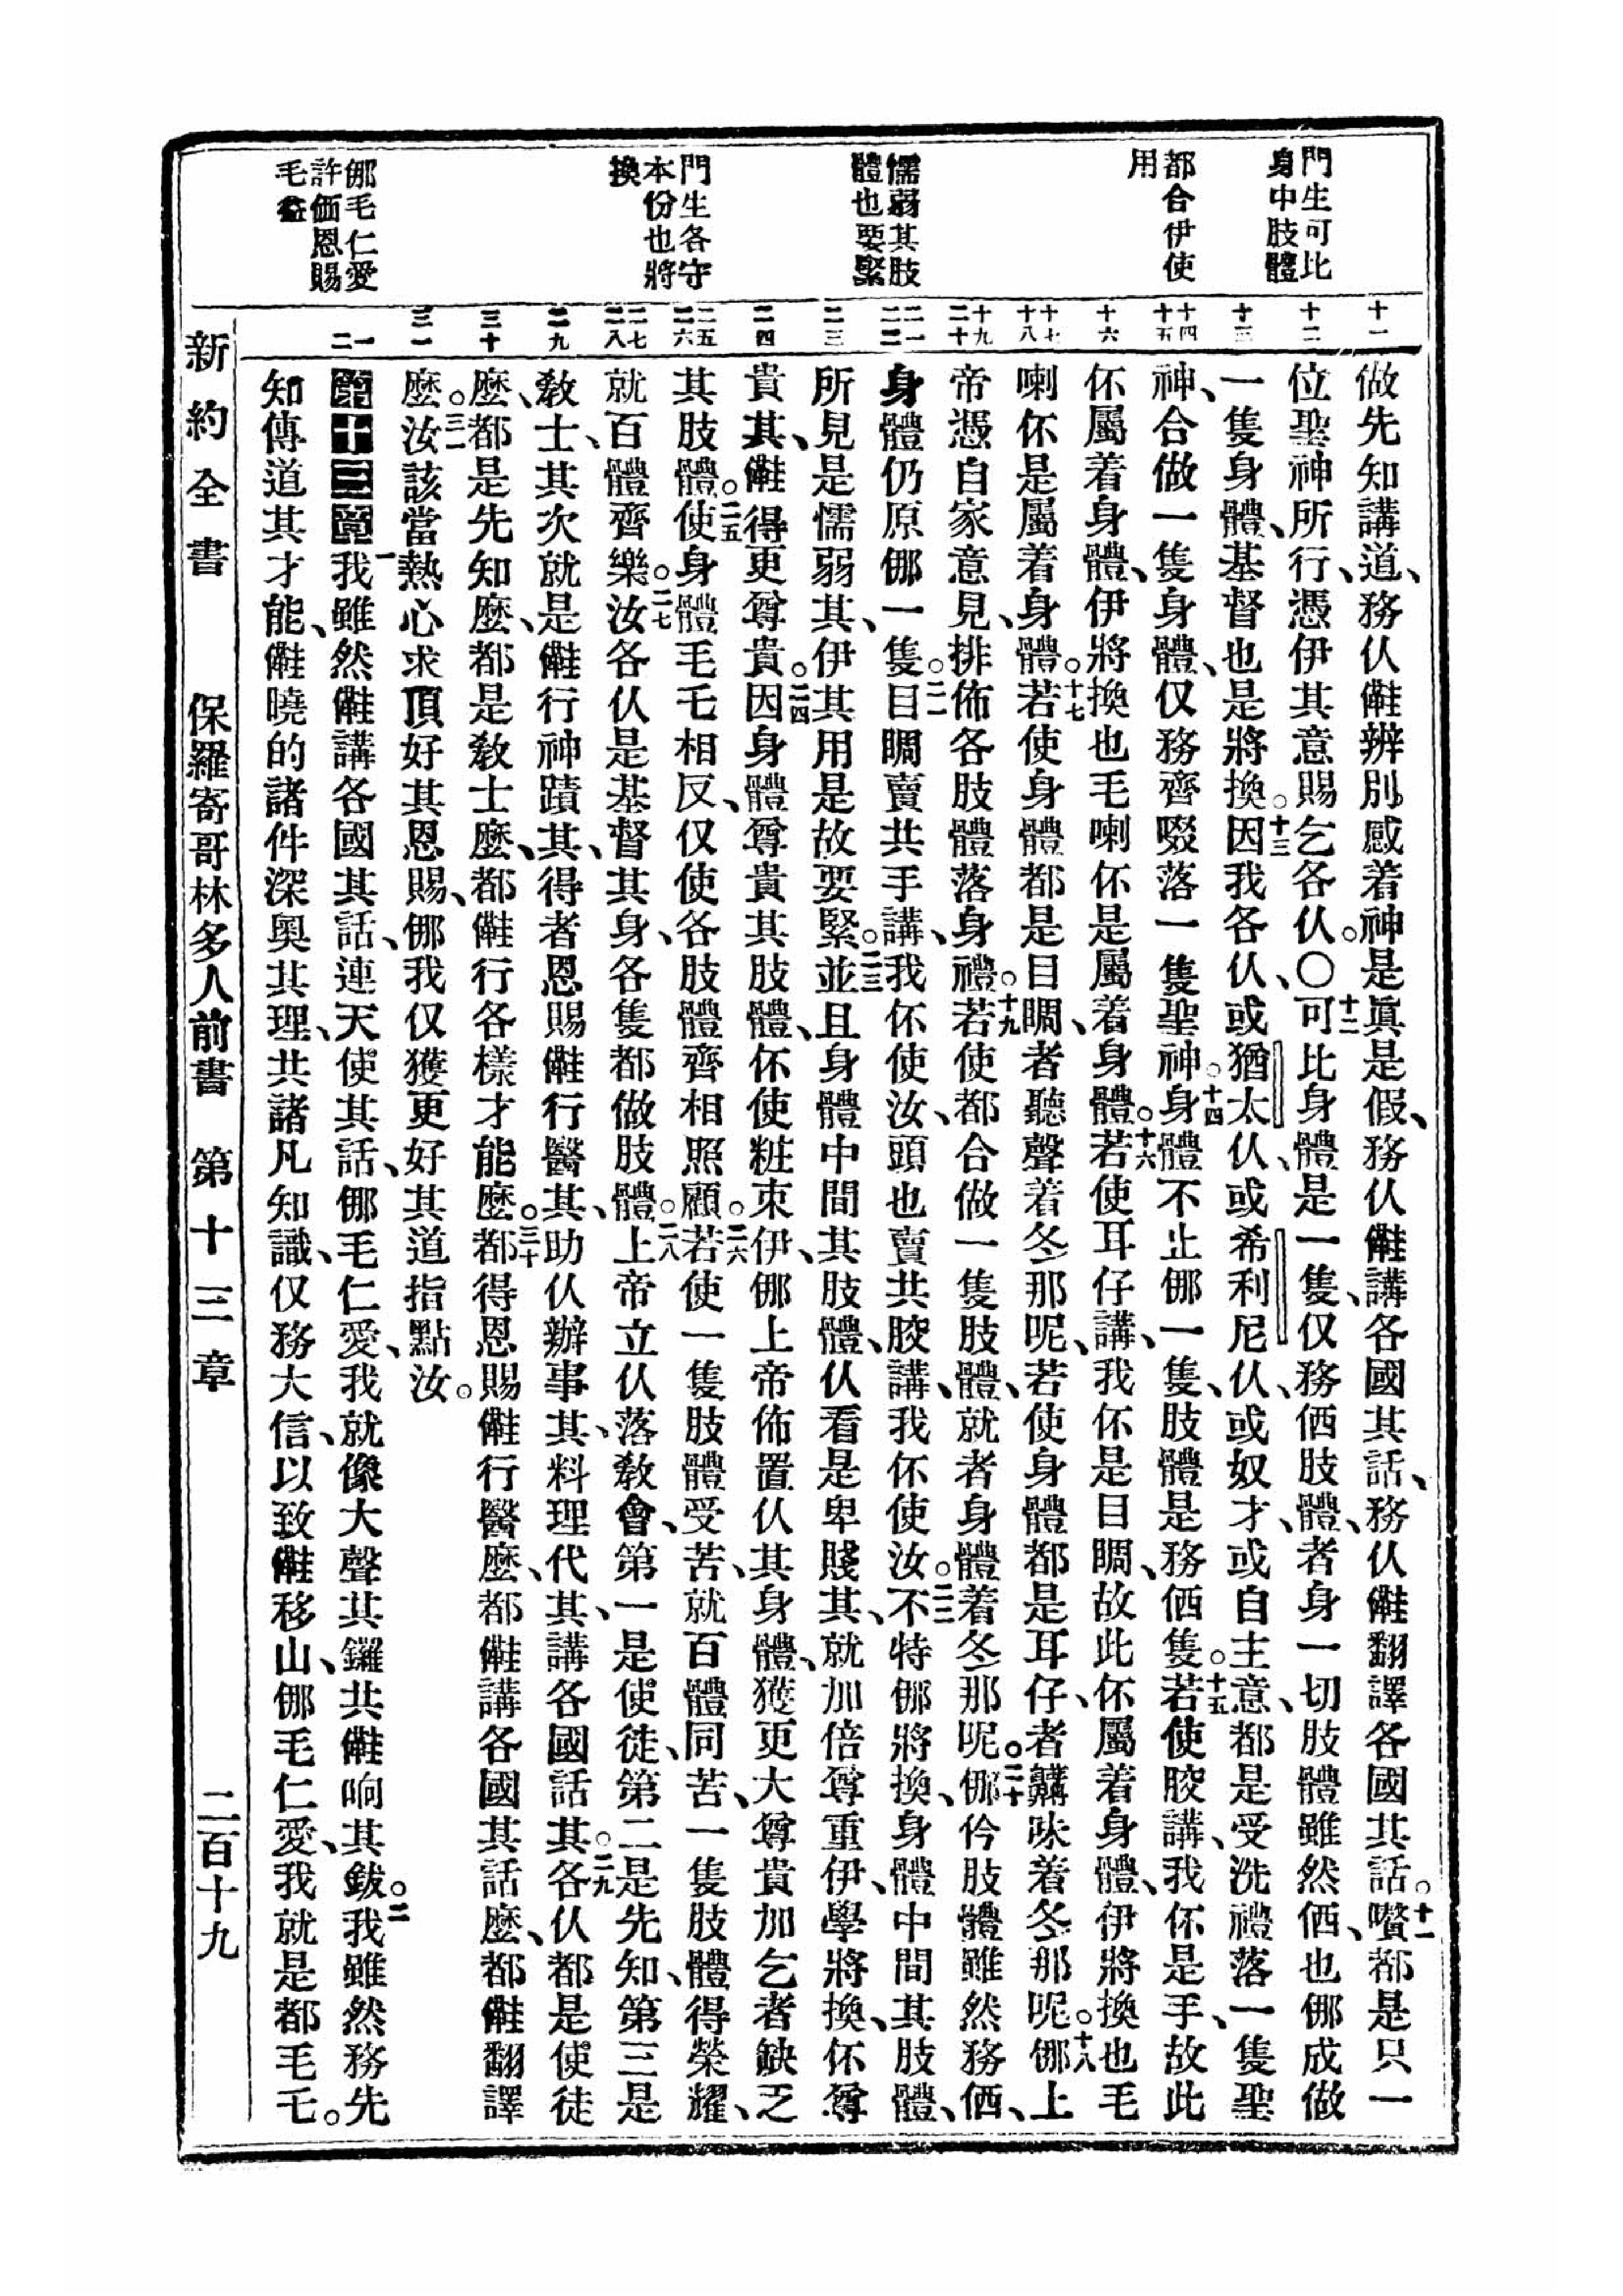 門生可比
身中肢體
都合伊使
用
懦弱其肢
體也要緊
門生各守
本份也將
換
㑚毛仁愛
許価恩賜
毛益
十一
十二
十三
十四
十五
十六
十七
十八
十九
二十
二一
二二
二三
二四
二五
二六
二七
二八
二九
三十
三一
一
二
做先知講道、務仈㒕辨別感着神是眞是假、務仈㒕講各國其話、務仈㒕翻譯各國其話。十一囋都是只一
位聖神所行、憑伊其意賜乞各仈。〇十二可比身體是一隻、仅務価肢體、者身一切肢體雖然価、也㑚成做
一隻身體、基督也是將換。十三因我各仈、或猶太仈、或希利尼仈、或奴才、或自主意、都是受洗禮落一隻聖
神、合做一隻身體、仅務齊啜落一隻聖神。十四身體不止㑚一隻、肢體是務価隻。十五若使骹講、我伓是手、故此
伓屬着身體、伊將換也毛喇伓是屬着身體。十六若使耳仔講、我伓是目睭、故此伓屬着身體、伊將換也毛
喇伓是屬着身體。十七若使身體都是目睭、者聽聲着冬那呢、若使身體都是耳仔、者鼻味着冬那呢。十八㑚上
帝憑自家意見、排佈各肢體落身禮。十九若使都合做一隻肢體、就者身體着冬那呢。二十㑚仱肢體雖然務価、
身體仍原㑚一隻。二一目睭賣共手講、我伓使汝、頭也賣共骹講、我伓使汝。二二不特㑚將換、身體中間其肢體、
所見是懦弱其、伊其用是故要緊。二三並且身體中間其肢體、仈看是卑賤其、就加倍尊重伊、學將換、伓尊
貴其、㒕得更尊貴。二四因身體尊貴其肢體、伓使粧束伊、㑚上帝佈置仈其身體、獲更大尊貴加乞者缺乏
其肢體。二五使身體毛乇相反、仅使各肢體齊相照顧。二六若使一隻肢體受苦、就百體同苦、一隻肢體得榮耀、
就百體齊樂。二七汝各仈是基督其身、各隻都做肢體。二八上帝立仈落教會、第一是使徒、第二是先知、第三是
教士、其次就是㒕行神蹟其、得者恩賜㒕行醫其、助仈辦事其、料理代其、講各國話其。二九各仈都是使徒
麽、都是先知麽、都是教士麽、都㒕行各樣才能麽。三十都得恩賜㒕行醫麽、都㒕講各國其話麽、都㒕翻譯
麽。三一汝該當熱心求頂好其恩賜、㑚我仅獲更好其道指點汝。
第十三章一我雖然㒕講各國其話、連天使其話、㑚毛仁愛、我就像大聲其鑼共㒕响其鈸。二我雖然務先
知傳道其才能、㒕曉的諸件深奧其理、共諸凡知識、仅務大信、以致㒕移山、㑚毛仁愛、我就是都毛乇。
新約全書　保羅寄哥林多人前書　第十三章　二百十九